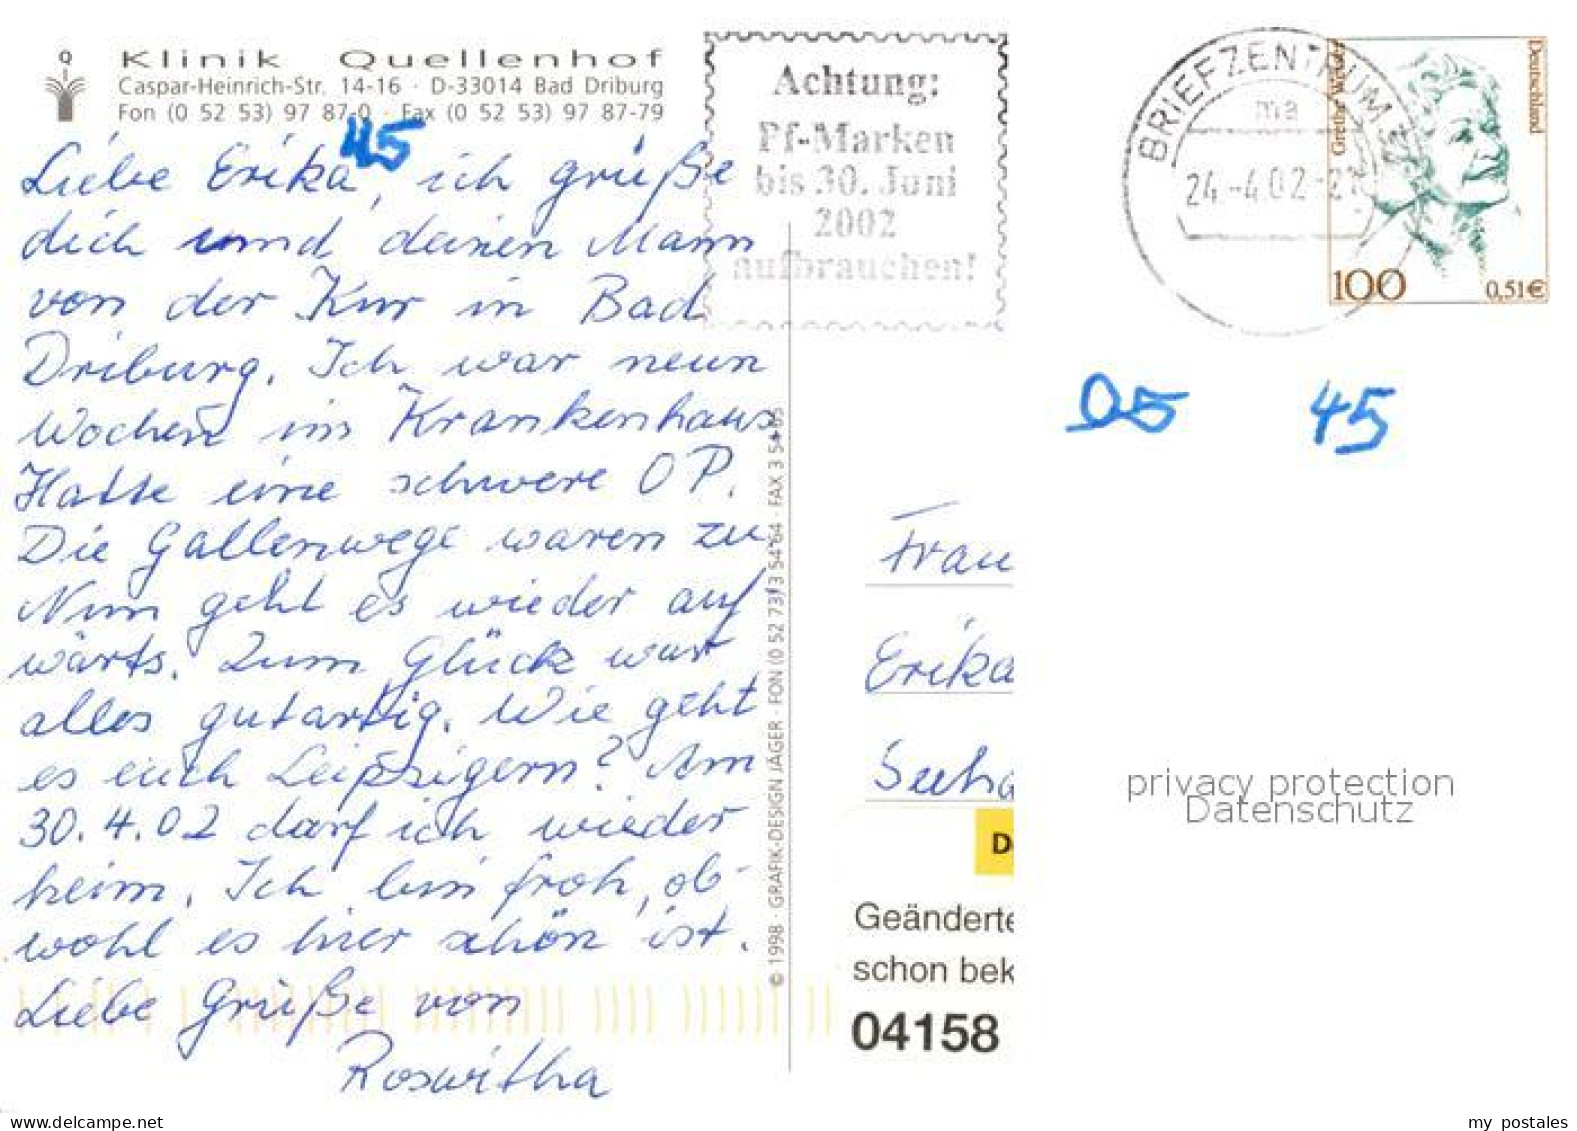 Klinik Quellenhof
Caspar-Heinrich-Str. 14-16 · D-33014 Bad Driburg
Fon (0 52 53) 97 87-0 · Fax (0 52 53) 97 87-79
45
Liebe Erika, ich grüße
dich und deinen Mann
von der Kur in Bad
Driburg. Ich war neun
Wochen im Krankenhaus
Hatte eine schwere OP.
Die Gallenwege waren zu
Nun geht es wieder auf
wärts. Zum Glück war
alles gutartig. Wie geht
es euch Leipzigern? Am
30.4.02 darf ich wieder
heim. Ich bin froh, ob-
wohl es hier schön ist.
Liebe Grüße von
Roswitha
© 1998 · GRAFIK-DESIGN JÄGER · FON (0 52 73) 3 54 64 · FAX 3 54 65
Achtung:
Pf-Marken
bis 30. Juni
2002
aufbrauchen!
BRIEFZENTRUM 3
ma
24.-4.02-21
Grethe Weiser
Deutschland
100
0,51€
05 45
Frau
Erika
Seeha
D
Geänderte
schon bek
04158
privacy protection
Datenschutz
www.delcampe.net
my_postales